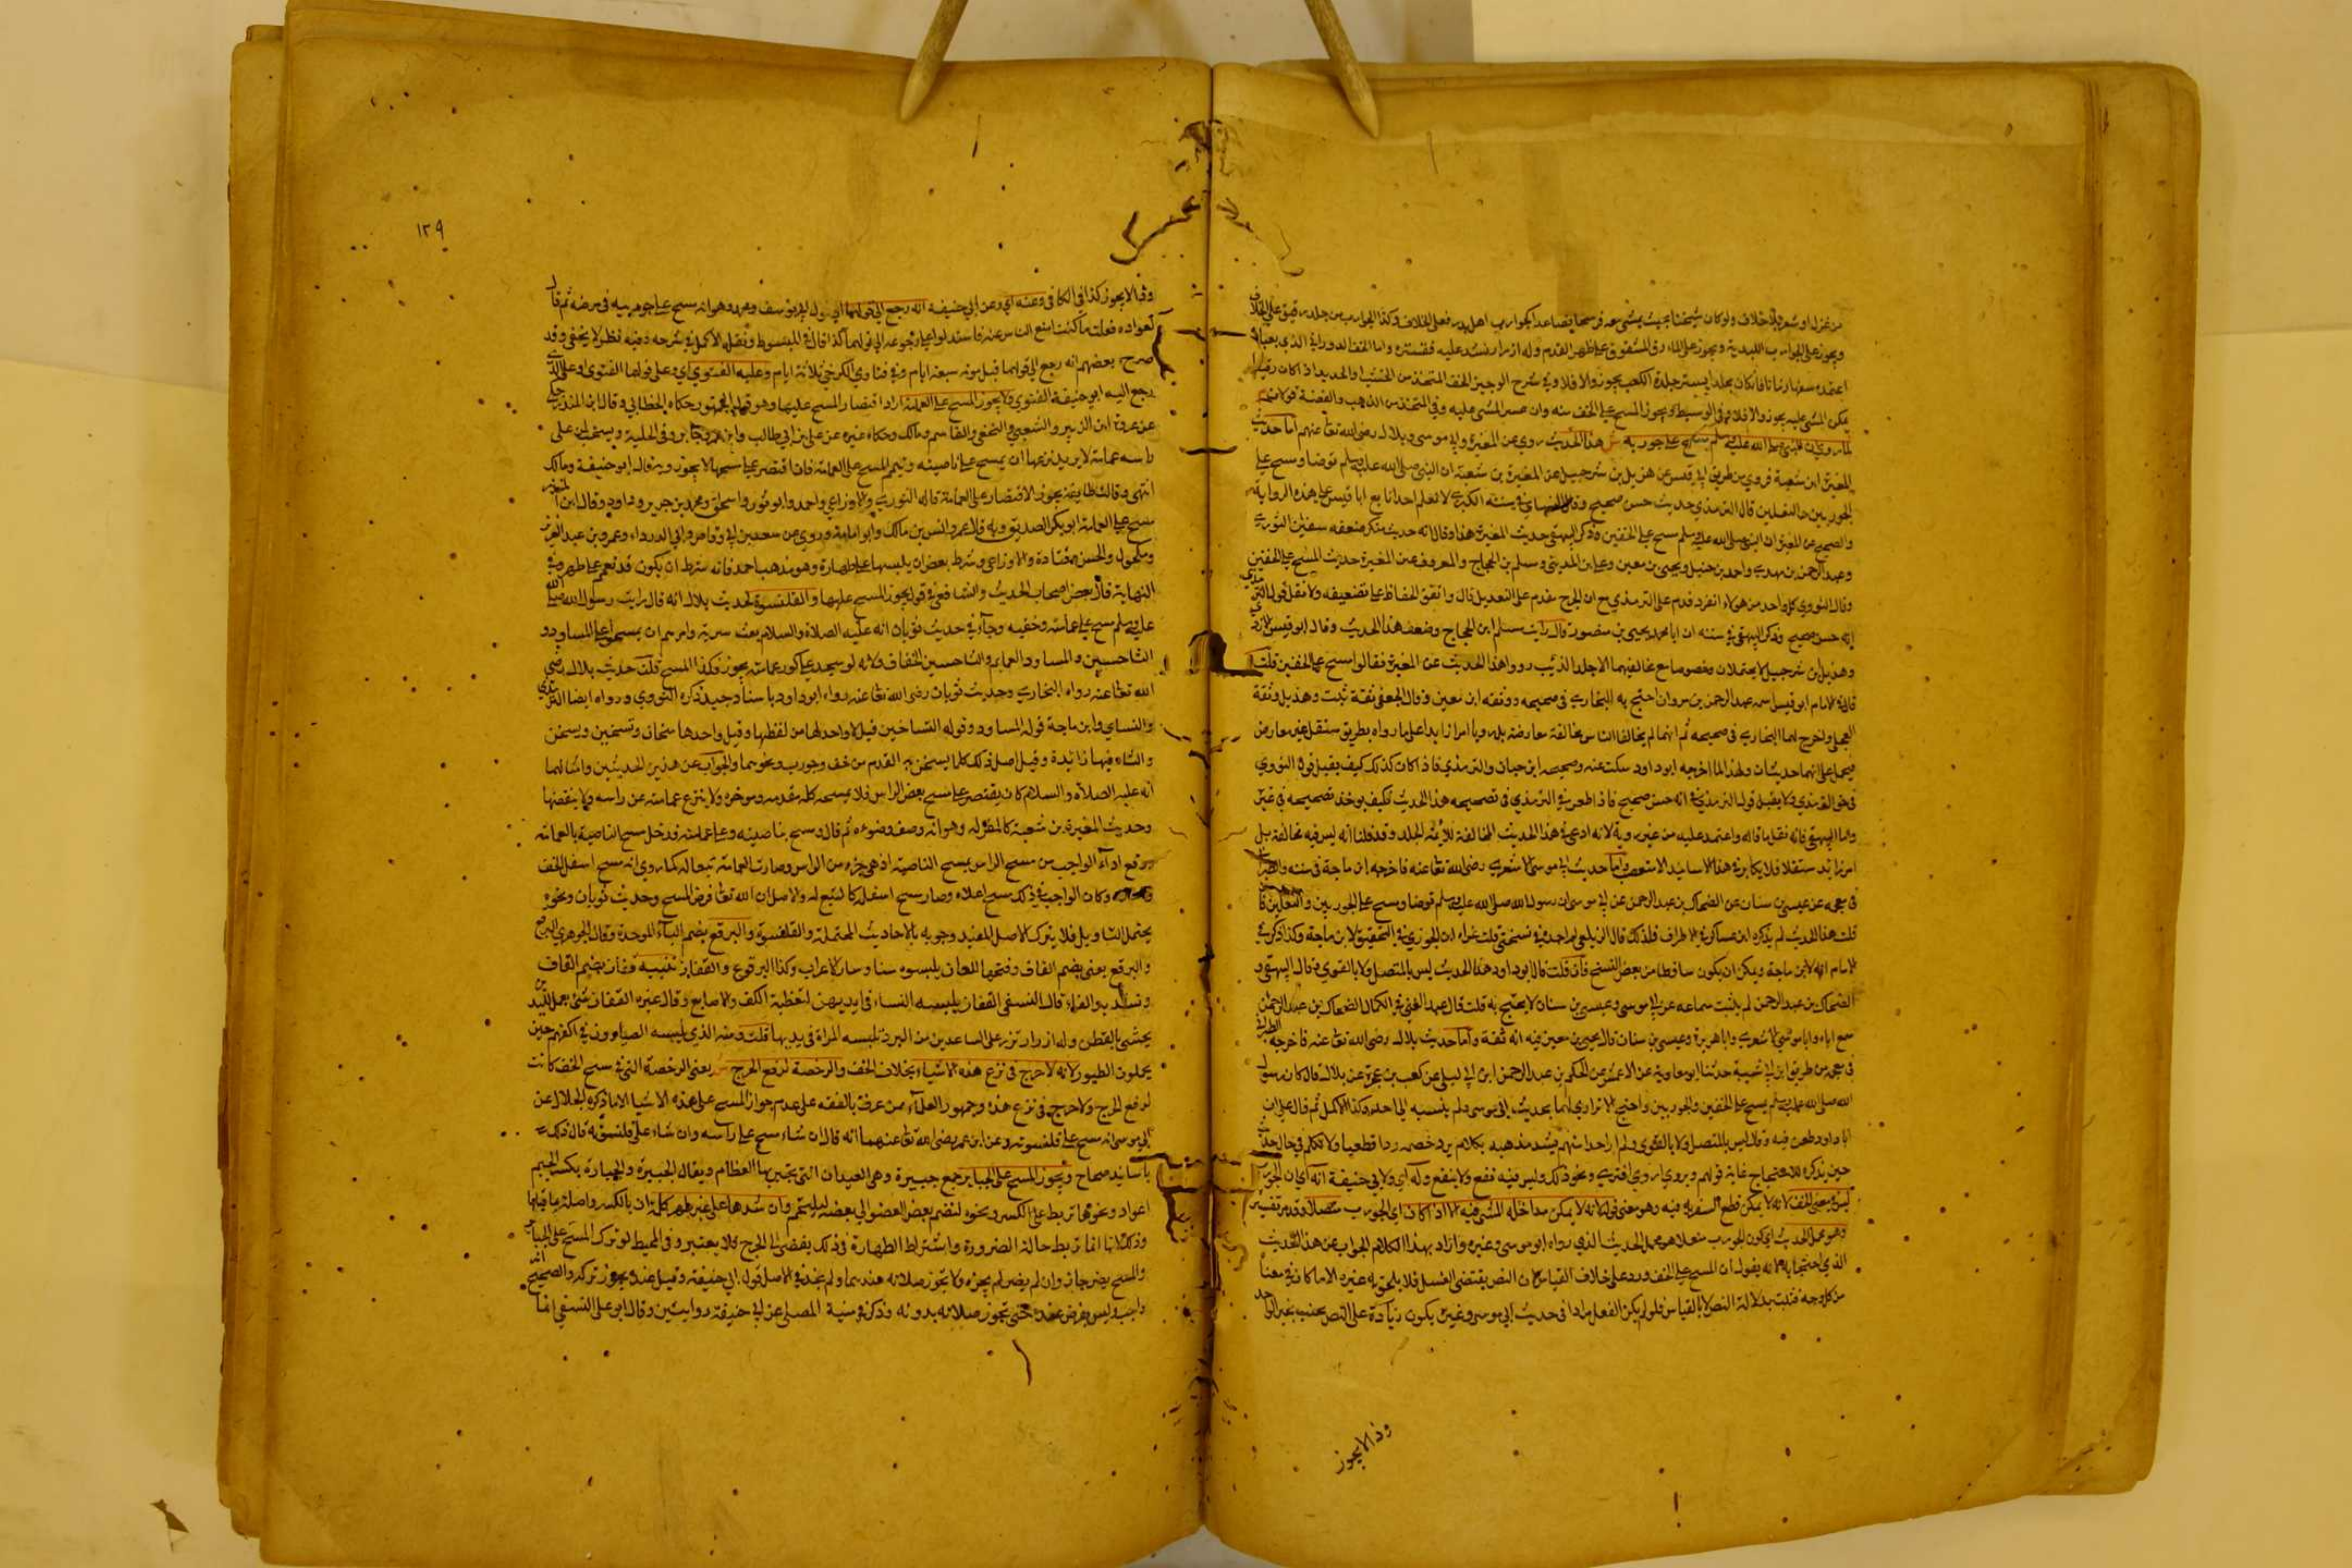 من غزل او شعر بلا خلاف ولو كان ثخينا بحيث يمشى معه فرسخا فصاعدا كجوارب اهل مرو فعلى الخلاف وكذا الجوارب من جلد رقيق على الخلاف
ويجوز على الجوارب اللبدية ويجوز على الجاروق المشقوق على ظهر القدم وله ازرار يشد عليه فيستره واما الخف الدوراني الذي يعتاده
يمكن المشي عليه يجوز والا فلا وفي الوسيط ويجوز المسح على الخف منه وان عسر المشي عليه وفي المتخذ من الذهب والفضة قولان
لما روي ان النبي صلى الله عليه وسلم مسح على جوربيه ش هذا الحديث روي عن المغيرة وابي موسى وبلال رضي الله تعا عنهم اما حديث
المغيرة ابن شعبة فروي من طريق ابي قيس عن هزيل بن شرحبيل عن المغيرة بن شعبة ان النبي صلى الله عليه وسلم توضا ومسح على
الجوربين والنعلين قال الترمذي حديث حسن صحيح وقال النسائي في سننه الكبرى لا نعلم احدا تابع ابا قيس على هذه الرواية
والصحيح عن المغيرة ان النبي صلى الله عليه وسلم مسح على الخفين وذكر البيهقي حديث المغيرة هذا وقال انه حديث منكر ضعفه سفيان الثوري
وعبد الرحمن بن مهدي واحمد بن حنبل ويحيى بن معين وعلي بن المديني ومسلم بن الحجاج والمعروف عن المغيرة حديث المسح على الخفين
وقال النووي كل واحد من هؤلاء انفرد قدم على الترمذي مع ان الجرح مقدم على التعديل قال واتفق الحفاظ على تضعيفه ولا نقبل قول الترمذي
انه حسن صحيح وذكر البيهقي في سننه ان ابا محمد يحيى بن منصور قال رايت مسلم ابن الحجاج وضعف هذا الحديث وقال ابو قيس الاودي
وهذيل بن شرحبيل لا يحتملان وخصوصا مع مخالفتهما الاجلة الذين رووا هذا الحديث عن المغيرة فقالوا مسح على الخفين قلت
قال في الامام ابو قيس اسمه عبد الرحمن بن مروان احتج به البخاري في صحيحه ووثقه ابن معين وقال الجعفي ثقة ثبت وهذيل وثقه
العجلي واخرج لهما البخاري في صحيحه ثم انهما لم يخالفا الناس مخالفة معارضة بل رويا امرا زايدا على ما رواه بطريق مستقل غير معارض
فيحمل على انهما حديثان ولهذا لما اخرجه ابو داود سكت عنه وصححه ابن حبان والترمذي فاذا كان كذلك كيف يقبل قول النووي
في حق الترمذي ولا يقبل قول الترمذي في انه حسن صحيح فاذا طعن في الترمذي في تصحيحه هذا الحديث فكيف يوخذ تصحيحه في غيره
واما البيهقي فانه نقل ما قاله واعتمد عليه من غير روية لانه ادعى في هذا الحديث المخالفة للائمة الجلة وقد قلنا انه ليس فيه مخالفة بل
امر زايد مستقل فلا يكابر في هذا الاسانيد الا متعصب واما حديث ابي موسى الاشعري رضي الله تعا عنه فاخرجه ابن ماجة في سننه والطبراني
في معجمه عن عيسى بن سنان عن الضحاك بن عبد الرحمن عن ابي موسى ان رسول الله صلى الله عليه وسلم توضا ومسح على الجوربين والنعلين فان
قلت هذا الحديث لم يذكره ابن عساكر في الاطراف فلذلك قال الزيلعي لم اجده في نسختي قلت عزاه ابن الجوزي في التحقيق لابن ماجة وكذا ذكر في
الامام انه لابن ماجة ويمكن ان يكون ساقطا من بعض النسخ فان قلت قال ابو داود هذا الحديث ليس بالمتصل ولا بالقوي وقال البيهقي و
الضحاك بن عبد الرحمن لم يثبت سماعه عن ابي موسى وعيسى بن سنان لا يحتج به قلت قال عبد الغني في الكمال الضحاك بن عبد الرحمن
سمع اباه وابا موسى الاشعري وابا هريرة وعيسى بن سنان قال يحيى بن معين فيه انه ثقة واما حديث بلال رضي الله تعا عنه فاخرجه الطبراني
في معجمه من طريق ابن ابي شيبة حدثنا ابو معاوية عن الاعمش عن الحكم بن عبد الرحمن ابن ابي ليلى عن كعب بن عجرة عن بلال قال كان رسول
الله صلى الله عليه وسلم يمسح على الخفين والجوربين واحتج الاترازي لهما بحديث ابي موسى ولم ينسبه الى احد وكذا الاكمل ثم قال على ان
ابا داود طعن فيه وقال ليس بالمتصل ولا بالقوي ولم ار احدا منهم يشد مذهبه بكلام يرد خصمه ردا قطعيا ولا تكلم في حال حديث
حين يذكره للاحتجاج غاية قولهم وروي او روي اخرى ونحو ذلك وليس فيه نفع ولا ينفع وله اي ولابي حنيفة انه اي ان الجورب
ليس في معنى الخف لانه لا يمكن قطع السفر به فيه وهو معنى قوله لانه لا يمكن مداخلة المشي فيه الا اذا كان اي الجورب منعلا وقد مر تفسيره
وهو محمل الحديث اي كون الجورب منعلا هو محمل الحديث الذي رواه ابو موسى وغيره واراد بهذا الكلام الجواب عن هذا الحديث
الذي احتجا به لانه يقول ان المسح على الخف ورد على خلاف القياس لان النص يقتضي الغسل فلا يلحق به غيره الا ما كان في معناه
من كل وجه فثبت بدلالة النص لا بالقياس فلو لم يكن الفعل مرادا في حديث ابي موسى وغيره يكون زيادة على النص بخبر الواحد
وذا لا يجوز
١٣٩
وذا لا يجوز كذا في الكافي وعنه اي وعن ابي حنيفة انه رجع الى قولهما اي قول ابي يوسف ومحمد وهو انه مسح على جوربيه في مرضه ثم قال
لعواده فعلت ما كنت امنع الناس عنه فاستدلوا على رجوعه الى قولهما كذا قال في المبسوط ونقله الاكمل في شرحه وفيه نظر لا يخفى وقد
صرح بعضهم انه رجع الى قولهما قبل موته بسبعة ايام وفي فتاوي الكرخي بثلاثة ايام وعليه الفتوى اي وعلى قولهما الفتوى او على الذي
رجع اليه ابو حنيفة الفتوى ولا يجوز المسح على العمامة اراد اقتصار المسح عليها وهو قول الجمهور حكاه الخطابي وقال ابن المنذر حكي
عن عروة ابن الزبير والشعبي والنخعي والقاسم ومالك وحكاه غيره عن علي بن ابي طالب وابن عمر وجابر وفي الحلية ويستحب لمن على
راسه عمامة لا يريد نزعها ان يمسح على ناصيته ويتمم المسح على العمامة فان اقتصر على مسحها لا يجوز وبه قال ابو حنيفة ومالك
انتهى وقالت طايفة يجوز الاقتصار على العمامة قاله الثوري والاوزاعي واحمد وابو ثور واسحق ومحمد بن جرير وداود وقال ابن المنذر
مسح على العمامة ابو بكر الصديق وبه قال عمر وانس بن مالك وابو امامة وروي عن سعد بن ابي وقاص وابي الدرداء وعمر بن عبد العزيز
ومكحول والحسن وقتادة والاوزاعي وشرط بعضهم ان يلبسها على طهارة وهو مذهب احمد فانه شرط ان يكون قد تعمم على طهر وفي
النهاية قال بعض اصحاب الحديث والشافعي في قول يجوز المسح عليها والقلنسوة لحديث بلال انه قال رايت رسول الله صلى الله
عليه وسلم مسح على عمامته وخفيه وجاء في حديث ثوبان انه عليه الصلاة والسلام بعث سرية وامرهم ان يمسحوا على المساودو
التساخين والمساود العمايم والتساخين الخفاف ولانه لو سجد على كور عمامته يجوز فكذا المسح قلت حديث بلال رضي
الله تعا عنه رواه البخاري وحديث ثوبان رضي الله تعا عنه رواه ابو داود باسناد جيد ذكره النووي ورواه ايضا الترمذي
والنسايي وابن ماجة قوله المساود وقوله التساخين قيل لا واحد لها من لفظها وقيل واحدها تسخان وتسخين وتسخن
والتاء فيها زائدة وقيل اصل ذلك كلما يسخن به القدم من خف وجورب ونحوهما والجواب عن هذين الحديثين وامثالهما
انه عليه الصلاة والسلام كان يقتصر على مسح بعض الراس فلا يمسحه كله مقدمه وموخره ولا ينزع عمامته عن راسه ولا ينقضها
وحديث المغيرة بن شعبة كالمفسر له وهو انه وصف وضوءه ثم قال ومسح بناصيته وعلى عمامته فدخل مسح الناصية بالعمامة
ووقع اداء الواجب من مسح الراس بمسح الناصية اذ هي جزء من الراس وصارت العمامة تبعا له كما روي انه مسح اسفل الخف
وكان الواجب في ذلك مسح اعلاه وصار مسح اسفله كالتبع له والاصل ان الله تعا فرض المسح وحديث ثوبان ونحوه
يحتمل التاويل فلا يترك الاصل المفيد وجوبه بالاحاديث المحتملة والقلنسوة والبرقع بضم الباء الموحدة وقال الجوهري البرقع
والبرقع يعني بضم القاف وفتحها للدواب يلبسوه نساء الاعراب وكذا البرقوع والقفازين تثنية قفاز بضم القاف
وتشديد والفاء قال النسفي القفاز يلبسه النساء في ايديهن لتغطية الكف والاصابع وقال غيره القفاز شئ يعمل لليدين
يحشى بالقطن وله ازرار تزر على الساعدين من البرد تلبسه المراة في يديها قلت ومنه الذي يلبسه الصيادون في اكفهم حين
يحملون الطيور لانه لا حرج في نزع هذه الاشياء بخلاف الخف والرخصة لرفع الحرج ش يعني الرخصة التي في مسح الخف كانت
لرفع الحرج ولا حرج في نزع هذه وجمهور العلماء ممن عرف بالفقه على عدم جواز المسح على هذه الاشياء الا ما ذكره الجلال عن
ابي موسى انه مسح على قلنسوته وعن ابن عمر رضي الله تعا عنهما انه قال ان شاء مسح على راسه وان شاء على قلنسوته قال ذلك
باسانيد صحاح ويجوز المسح على الجباير جمع جبيرة وهي العيدان التي تجبر بها العظام ويقال الجبيرة والجبارة بكسر الجيم
اعواد ونحوها تربط على الكسر ونحوه لتضم بعض العضو الى بعضه ليلتحم وان شدها على غير طهر كلمة ان بالكسر واصلة بما قبلها
وذلك لانها انما تربط حالة الضرورة واشتراط الطهارة في ذلك يفضي الى الحرج فلا يعتبر وفي المحيط لو ترك المسح على الجباير
والمسح يضر جاز وان لم يضر لم يجزه ولا تجوز صلاته عندهما ولم يحك في الاصل قول ابي حنيفة وقيل عنده يجوز تركه والصحيح انه
واجب وليس بفرض عنده حتى تجوز صلاته بدونه وذكر في منية المصلي عن ابي حنيفة روايتين وقال ابو علي النسفي انما